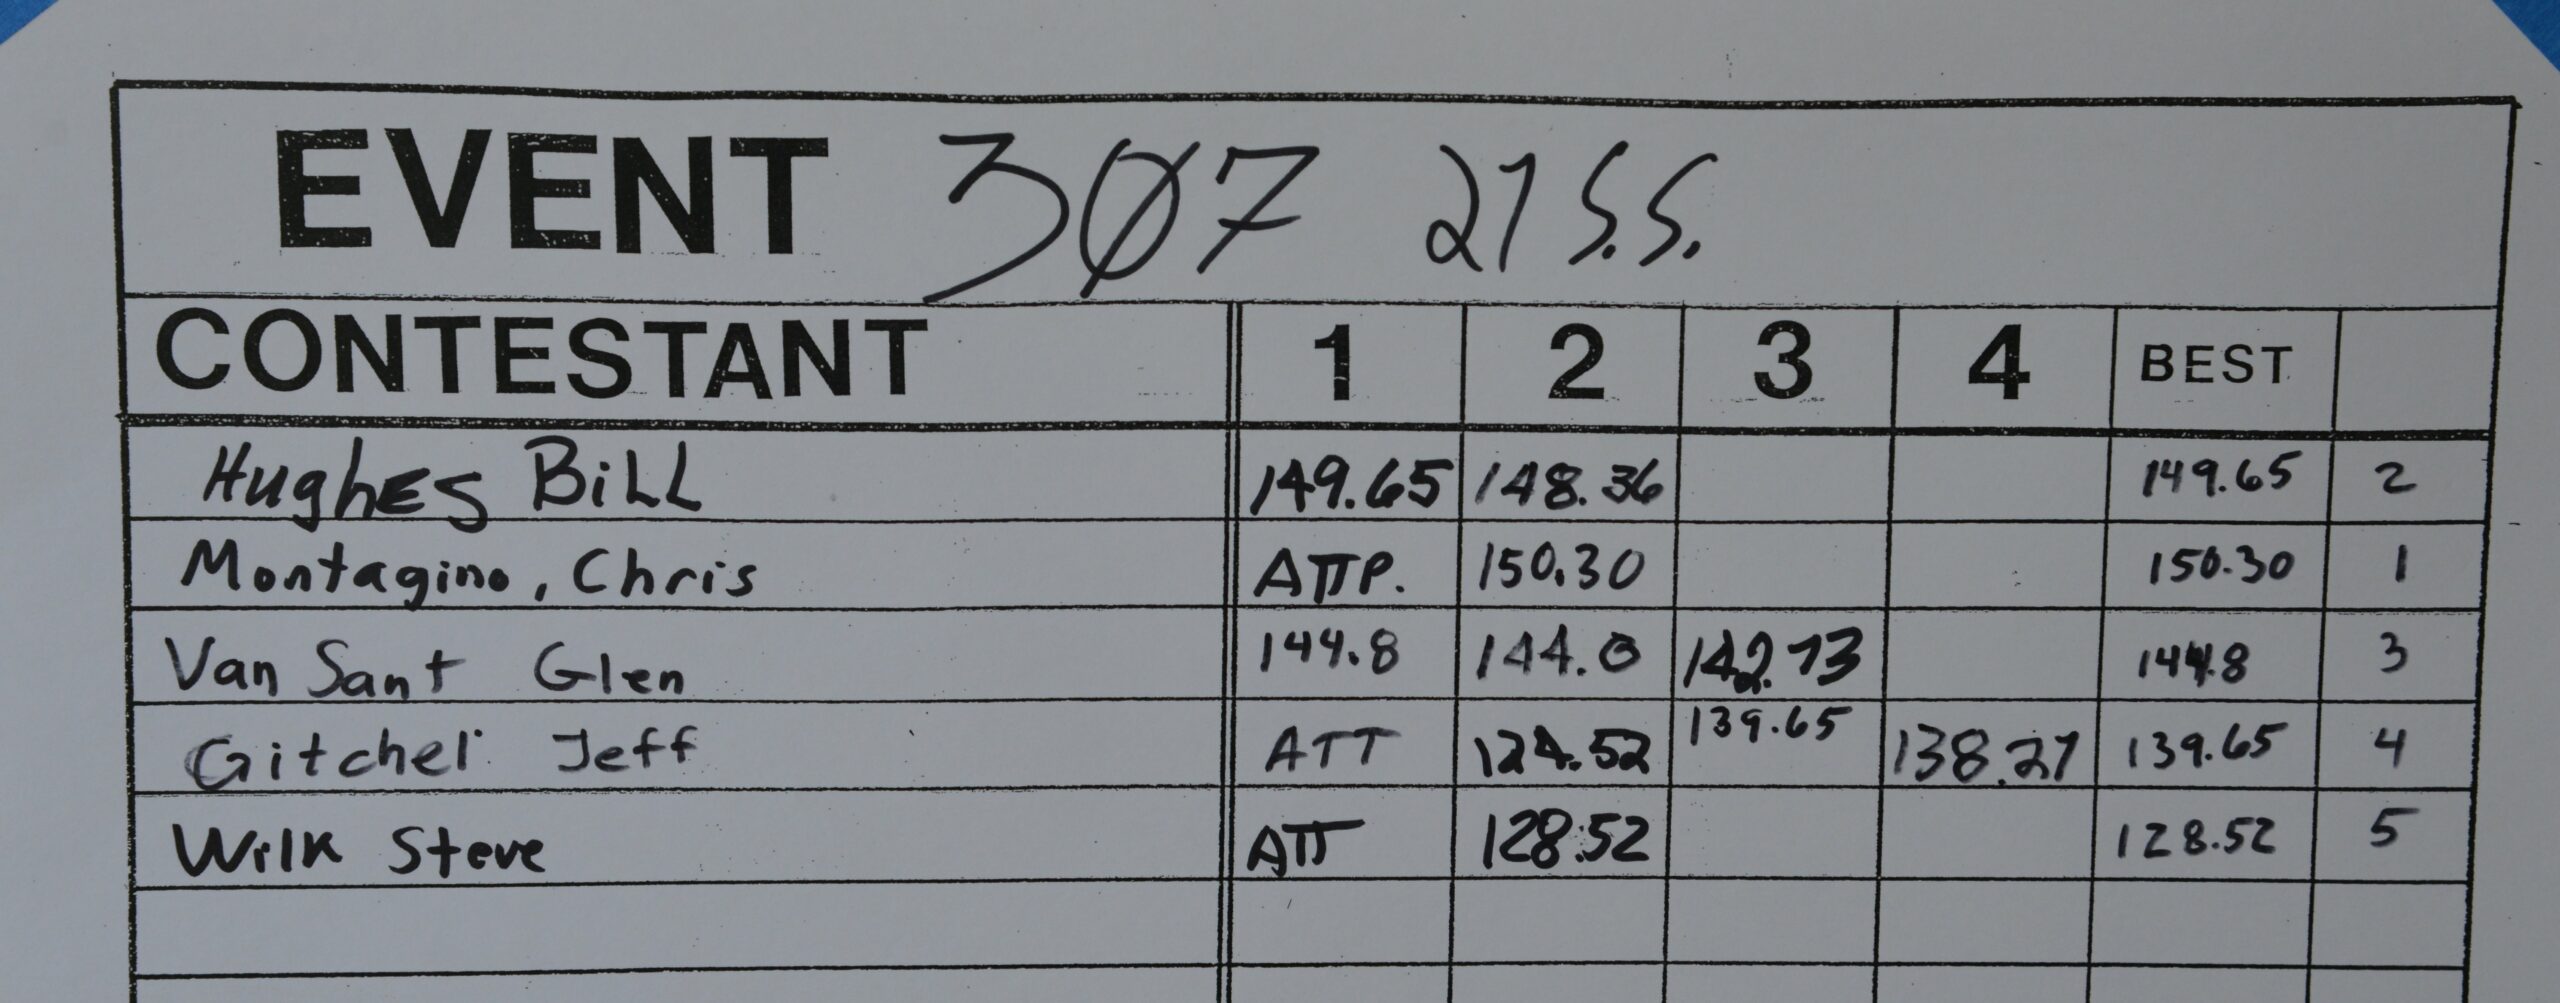 EVENT 307 21 S.S.
CONTESTANT 1 2 3 4 BEST
Hughes Bill 149.65 148.36 149.65 2
Montagino, Chris ATTP. 150.30 150.30 1
Van Sant Glen 144.8 144.0 142.73 144.8 3
Gitchel Jeff ATT 124.52 139.65 138.27 139.65 4
Wilk Steve ATT 128.52 128.52 5